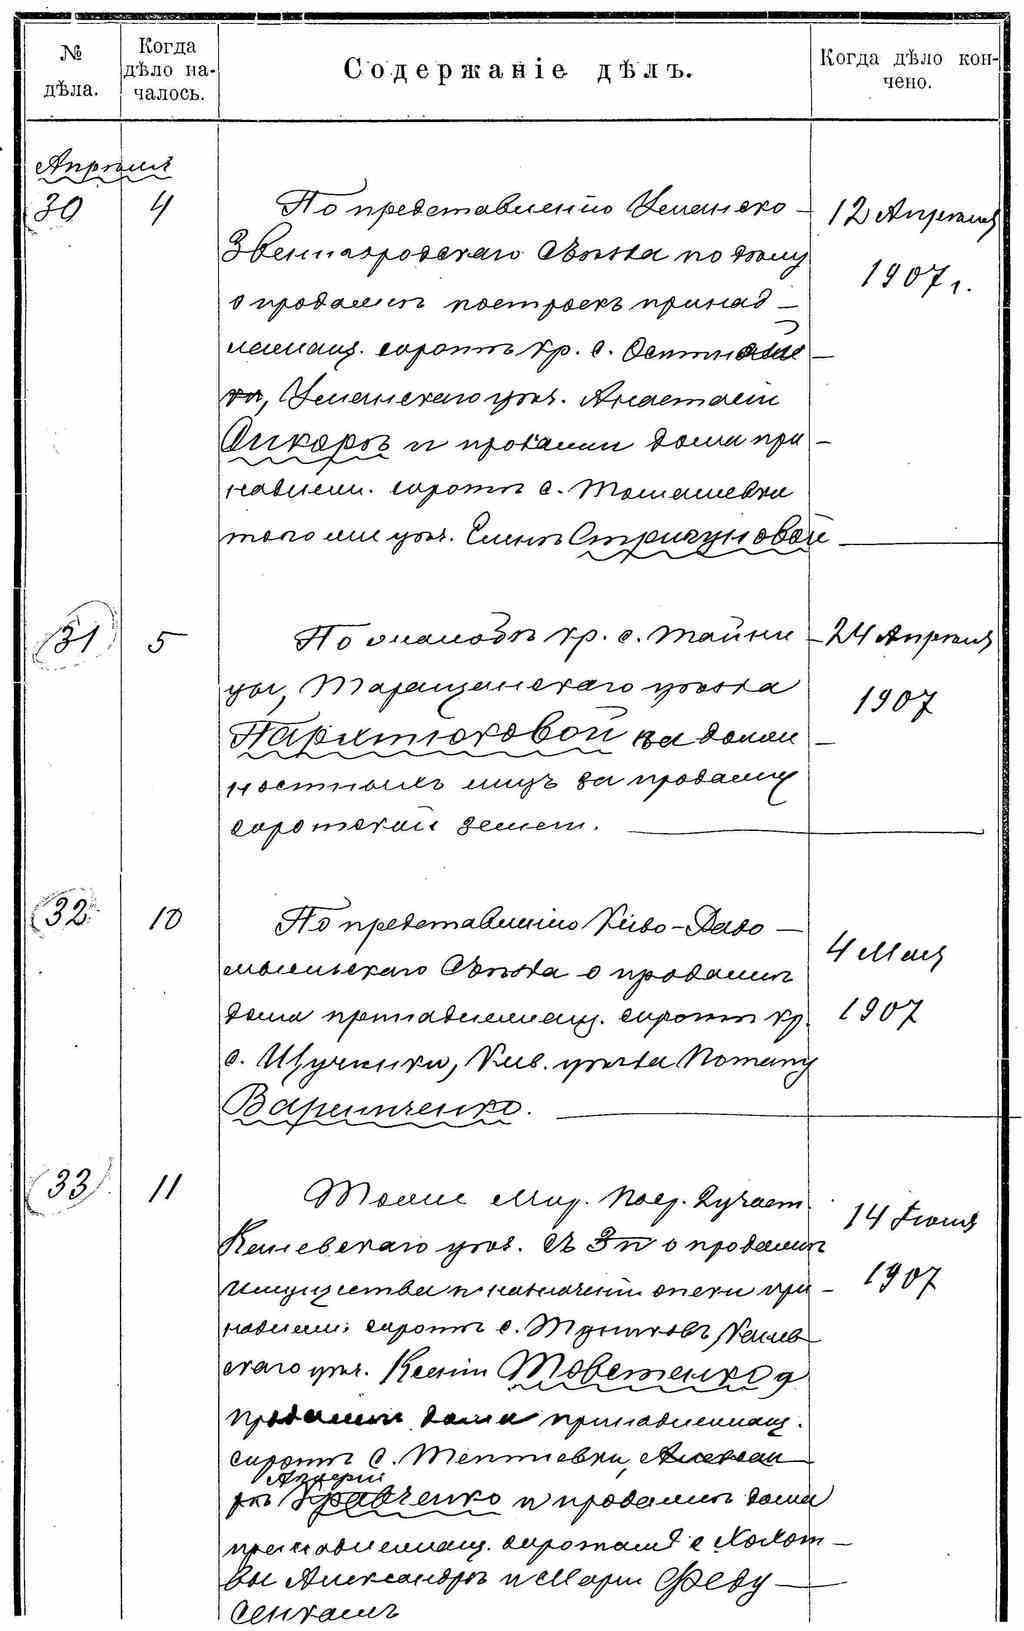 № дѣла.
Когда дѣло началось.
Содержаніе дѣлъ.
Когда дѣло кончено.
Апрѣля
30 4
По представленію Уманско-
Звенигородскаго Съѣзда по дѣлу
о продажѣ построекъ принад-
лежащ. сиротѣ кр. с.
Уманскаго уѣз. Анастасіи
и продажи дома при-
надлеж. сиротѣ с. Томашевки
того же уѣз. Еленѣ Стригуновой
12 Апрѣля
1907 г.
31 5
По жалобѣ кр. с. Тайни-
цы, Таращанскаго уѣзда
Пархтюковой на долж-
ностныхъ лицъ за продажу
сиротской земли.
24 Апрѣля
1907
32 10
По представленію Кіево-Радо-
мысльскаго Съѣзда о продажѣ
дома принадлежащ. сиротѣ кр.
с. Щучинки, Кіев. уѣзда Потапу
Варитченко.
4 Мая
1907
33 11
Тоже Мир. Поср. 2 участ.
Каневскаго уѣз. съ 3п о продажѣ
имущества и назначеніи опеки при-
надлеж. сиротѣ с. Канев-
скаго уѣз. Ксеніи Товстенко о
продажи дома принадлежащ.
сиротѣ с. Тептіевки,
Андрею
Кравченко и продажѣ дома
принадлежащ. сиротамъ с. Хохот-
вы Александрѣ и Маріи Феду-
сенкамъ
14 Іюня
1907